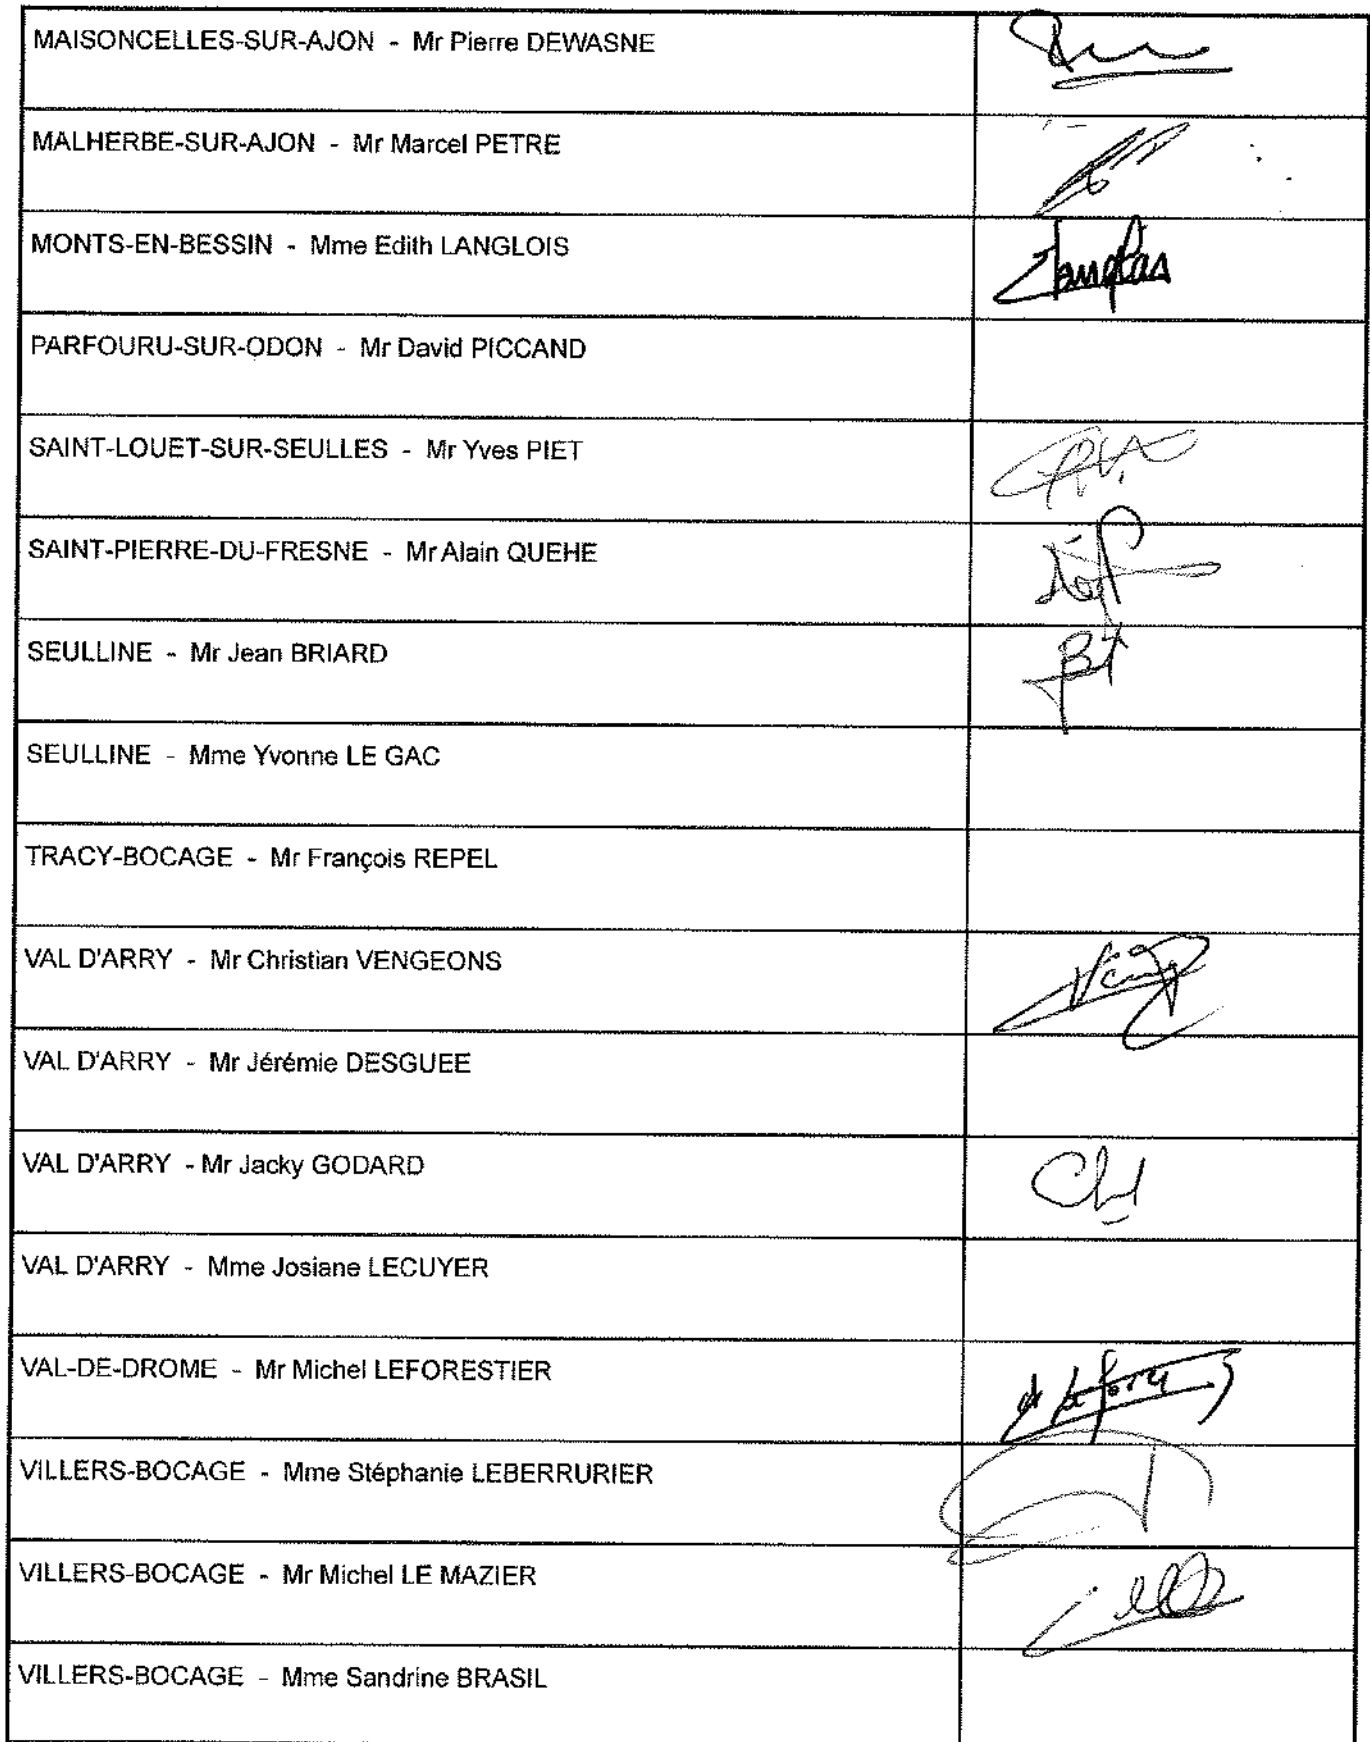 MAISONCELLES-SUR-AJON - Mr Pierre DEWASNE
MALHERBE-SUR-AJON - Mr Marcel PETRE
MONTS-EN-BESSIN - Mme Edith LANGLOIS
PARFOURU-SUR-ODON - Mr David PICCAND
SAINT-LOUET-SUR-SEULLES - Mr Yves PIET
SAINT-PIERRE-DU-FRESNE - Mr Alain QUEHE
SEULLINE - Mr Jean BRIARD
SEULLINE - Mme Yvonne LE GAC
TRACY-BOCAGE - Mr François REPEL
VAL D'ARRY - Mr Christian VENGEONS
VAL D'ARRY - Mr Jérémie DESGUEE
VAL D'ARRY - Mr Jacky GODARD
VAL D'ARRY - Mme Josiane LECUYER
VAL-DE-DROME - Mr Michel LEFORESTIER
VILLERS-BOCAGE - Mme Stéphanie LEBERRURIER
VILLERS-BOCAGE - Mr Michel LE MAZIER
VILLERS-BOCAGE - Mme Sandrine BRASIL